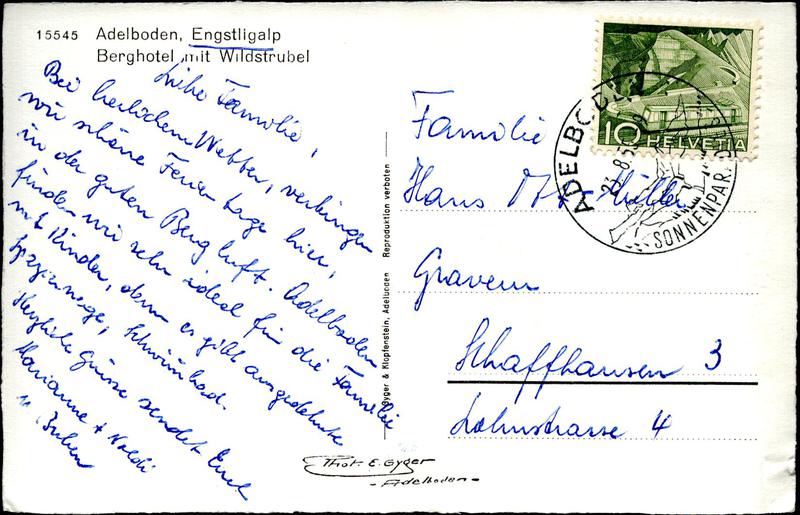 15545 Adelboden, Engstligalp
Berghotel mit Wildstrubel
Liebe Familie,
Bei herlichem Wetter, verbringen
wir schöne Ferientage hier,
in der guten Bergluft. Adelboden
finden wir sehr ideal für die Familie
mit Kinder, denn es gibt ausgedehnte
Spazierwege, Schwimbad.
Herzliche Grüsse sendet Euch
Marianne + Noldi
Gyger & Klopfenstein, Adelboden Reproduktion verboten
Phot. E. Gyger
- Adelboden -
10 HELVETIA
ADELBODEN
SONNENPARADIES
Familie
Hans Müller
Graveur
Schaffhausen 3
Lahnstrasse 4